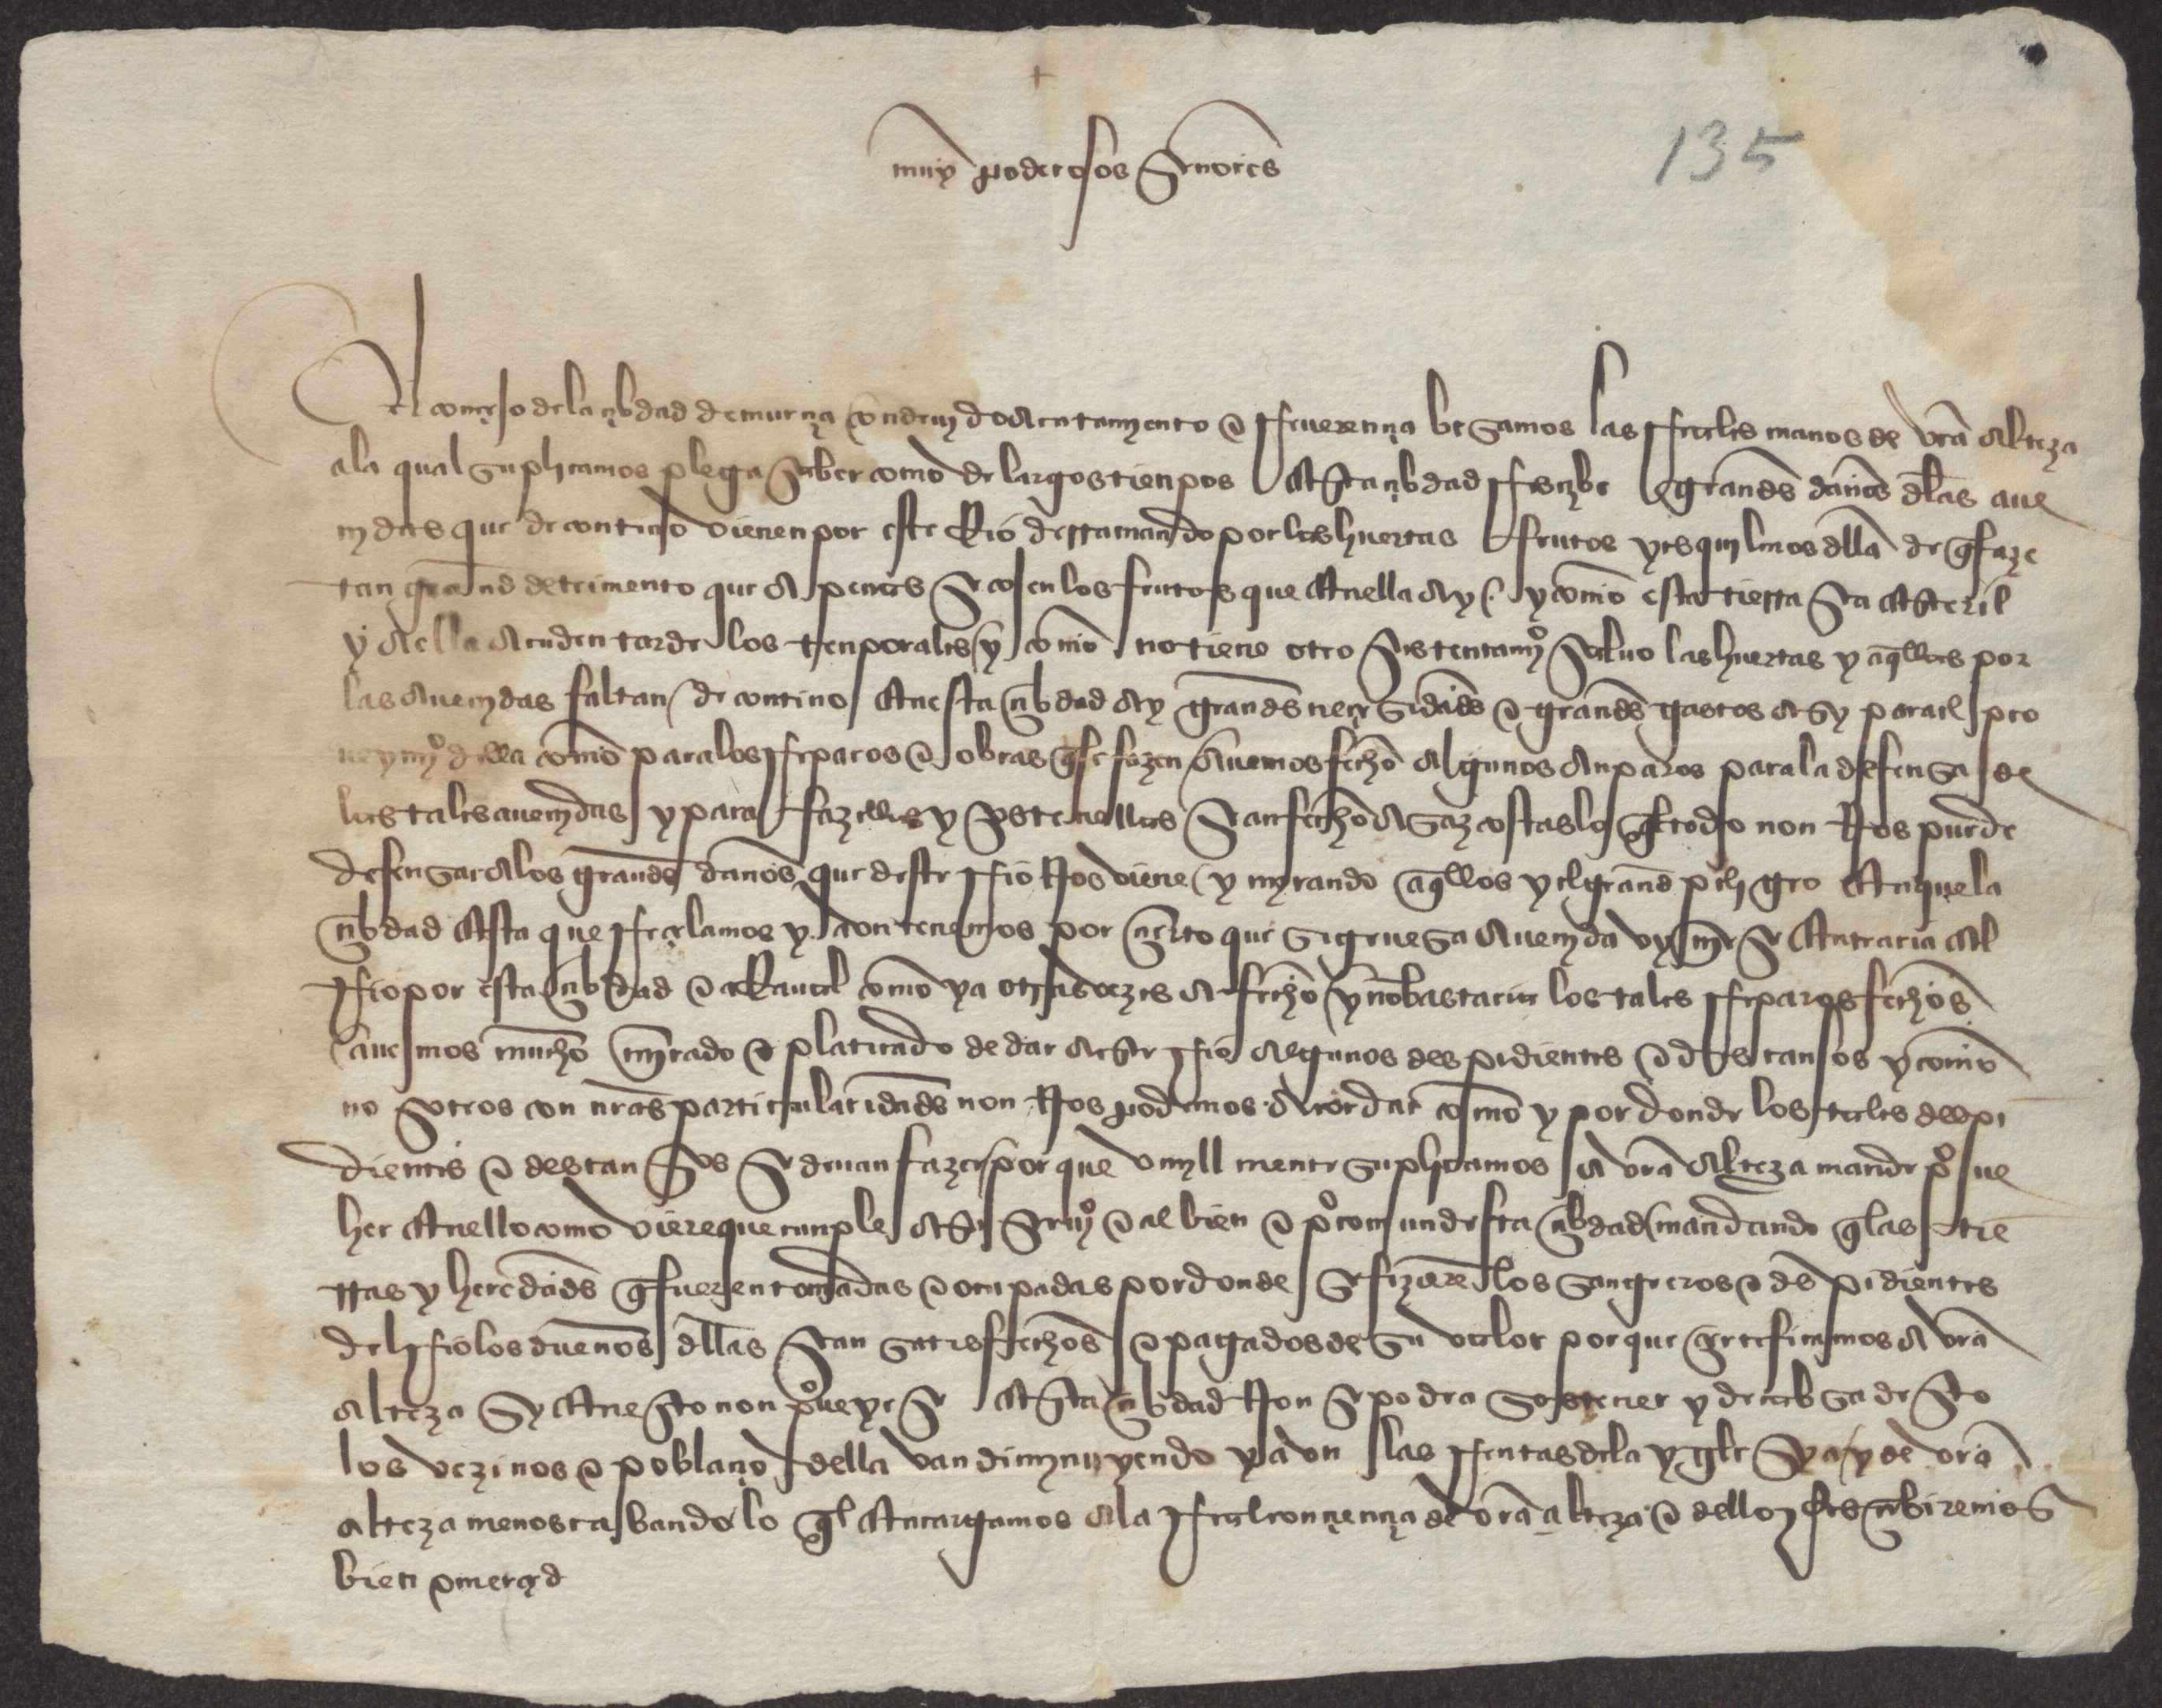 muy poderosos señores
135
El conçejo de la çibdad de murçia con deuido acatamyento e rreuerençia besamos las rreales manos de vra alteza
a la qual suplicamos plega saber como de largos tienpos a esta çibdad rresçibe grandes daños dlas aue
nydas que de contino vienen por este Rio derramando por las huertas frutos y esquilmos dlla de q faze
tan grand detrimento que a penas se cojen los frutos que en ella ay / y como esta tierra sea esteril
y a ella acuden tarde los tenporales / y como no tiene otro sustentamyo saluo las huertas y aqllas por
las auenydas faltan / de contino en esta çibdad ay grandes neçesidades e grandes gastos asy para el pro
ueymyo della como para los rreparos e obras q se fazen / auemos fecho algunos anparos para la defensa de
las tales auenydas y para fazellas y sostenellas se an fecho asaz costas lo q todo non nos puede
defensar a los grandes daños que deste rrio nos viene / y myrando aqllos y el grand peligro en que la
çibdad esta que rreçelamos y aun tenemos por çierto que si gruesa auenyda vynyese se entraria el
rrio por esta çibdad e arraual como ya otras vezes a fecho / y no bastaria los tales rreparos fechos
auemos mucho myrado e platicado de dar a este rrio algunos despidientes e descansos y como
nosotros con nras particularidades non nos podemos acordar como y por donde los tales despi
dientes e descansos se deuan fazer / por que vmyll mente suplicamos a vra alteza mande proue
her en ello como viere que cunple a su seruyo e al bien e pro comun desta çibdad / mandando q las tie
rras y heredades q fueren tomadas e ocupadas por donde se fizieren los sangreros e despidientes
del rrio los dueños dllas sean satisfechos e pagados de su valor por que çertificamos a vra
alteza sy en esto non proueye se esta çibdad non se podra sostener y de cabsa desto
los vezinos e poblaçion della van dimynuyendo y avn las rrentas de la yglesia suya / y de vra
alteza menoscabando / lo ql encargamos a la rreal conçiençia de vra alteza e dello rresçibiremos
bien e merçed